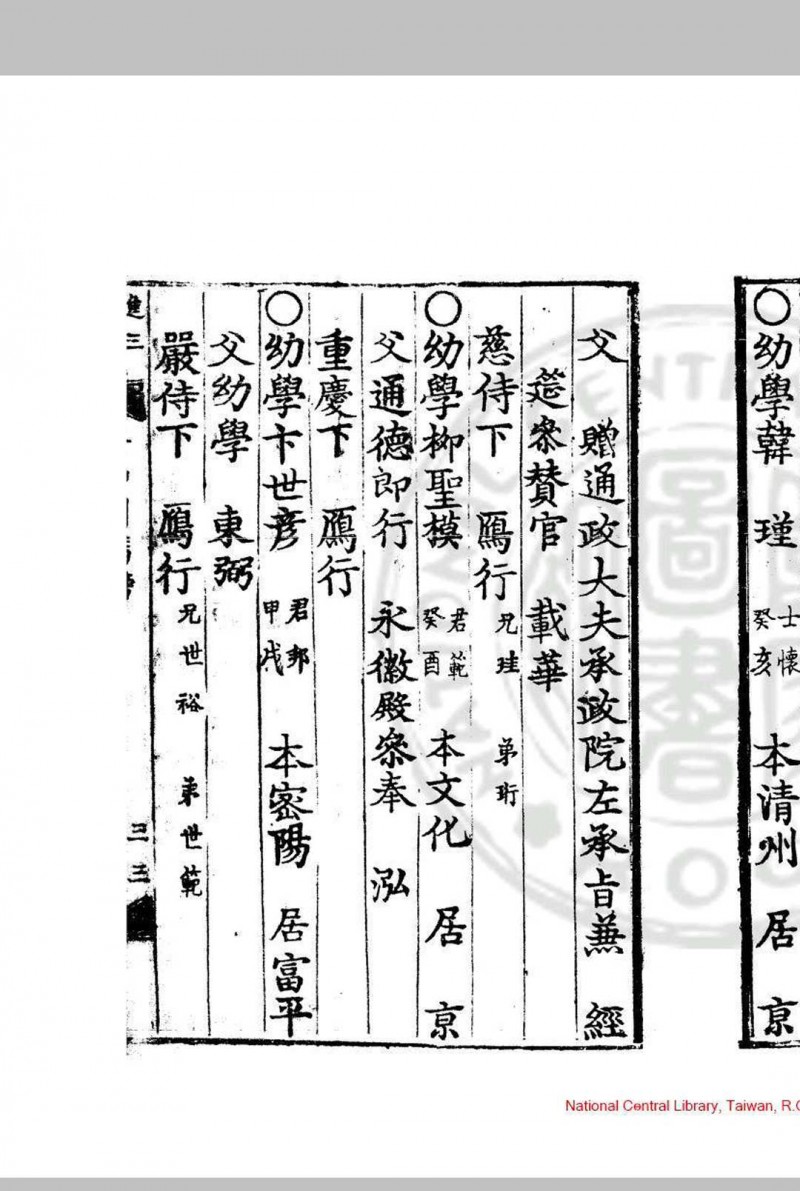 ○幼學韓 瑾 士懷 癸亥 本清州 居 京
父 贈通政大夫承政院左承旨兼 經
筵參贊官 載華
慈侍下 鴈行 兄珪 弟珩
○幼學柳聖模 君範 癸酉 本文化 居 京
父通德郎行 永徽殿參奉 泓
重慶下 鴈行
○幼學卞世彦 君邦 甲戌 本密陽 居富平
父幼學 東弼
嚴侍下 鴈行 兄世裕 弟世範
進三
三三
圖書
National Central Library, Taiwan, R.